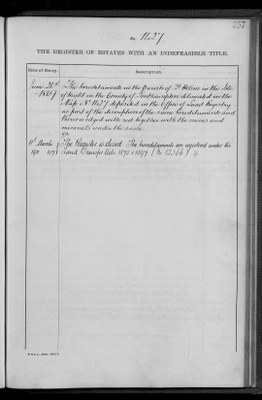 No. 1427
THE REGISTER OF ESTATES WITH AN INDEFEASIBLE TITLE.
Date of Entry.
Description.
The hereditaments in the Parish of St. Helens in the Isle
of Wight in the County of Southampton delineated on the
Map No. 1427 deposited in the Office of Land Registry
as part of the description of the same hereditaments and
thereon edged with red together with the mines and
minerals under the same
The Register is closed. The hereditaments are registered under the
Land Transfer Acts 1875 & 1897